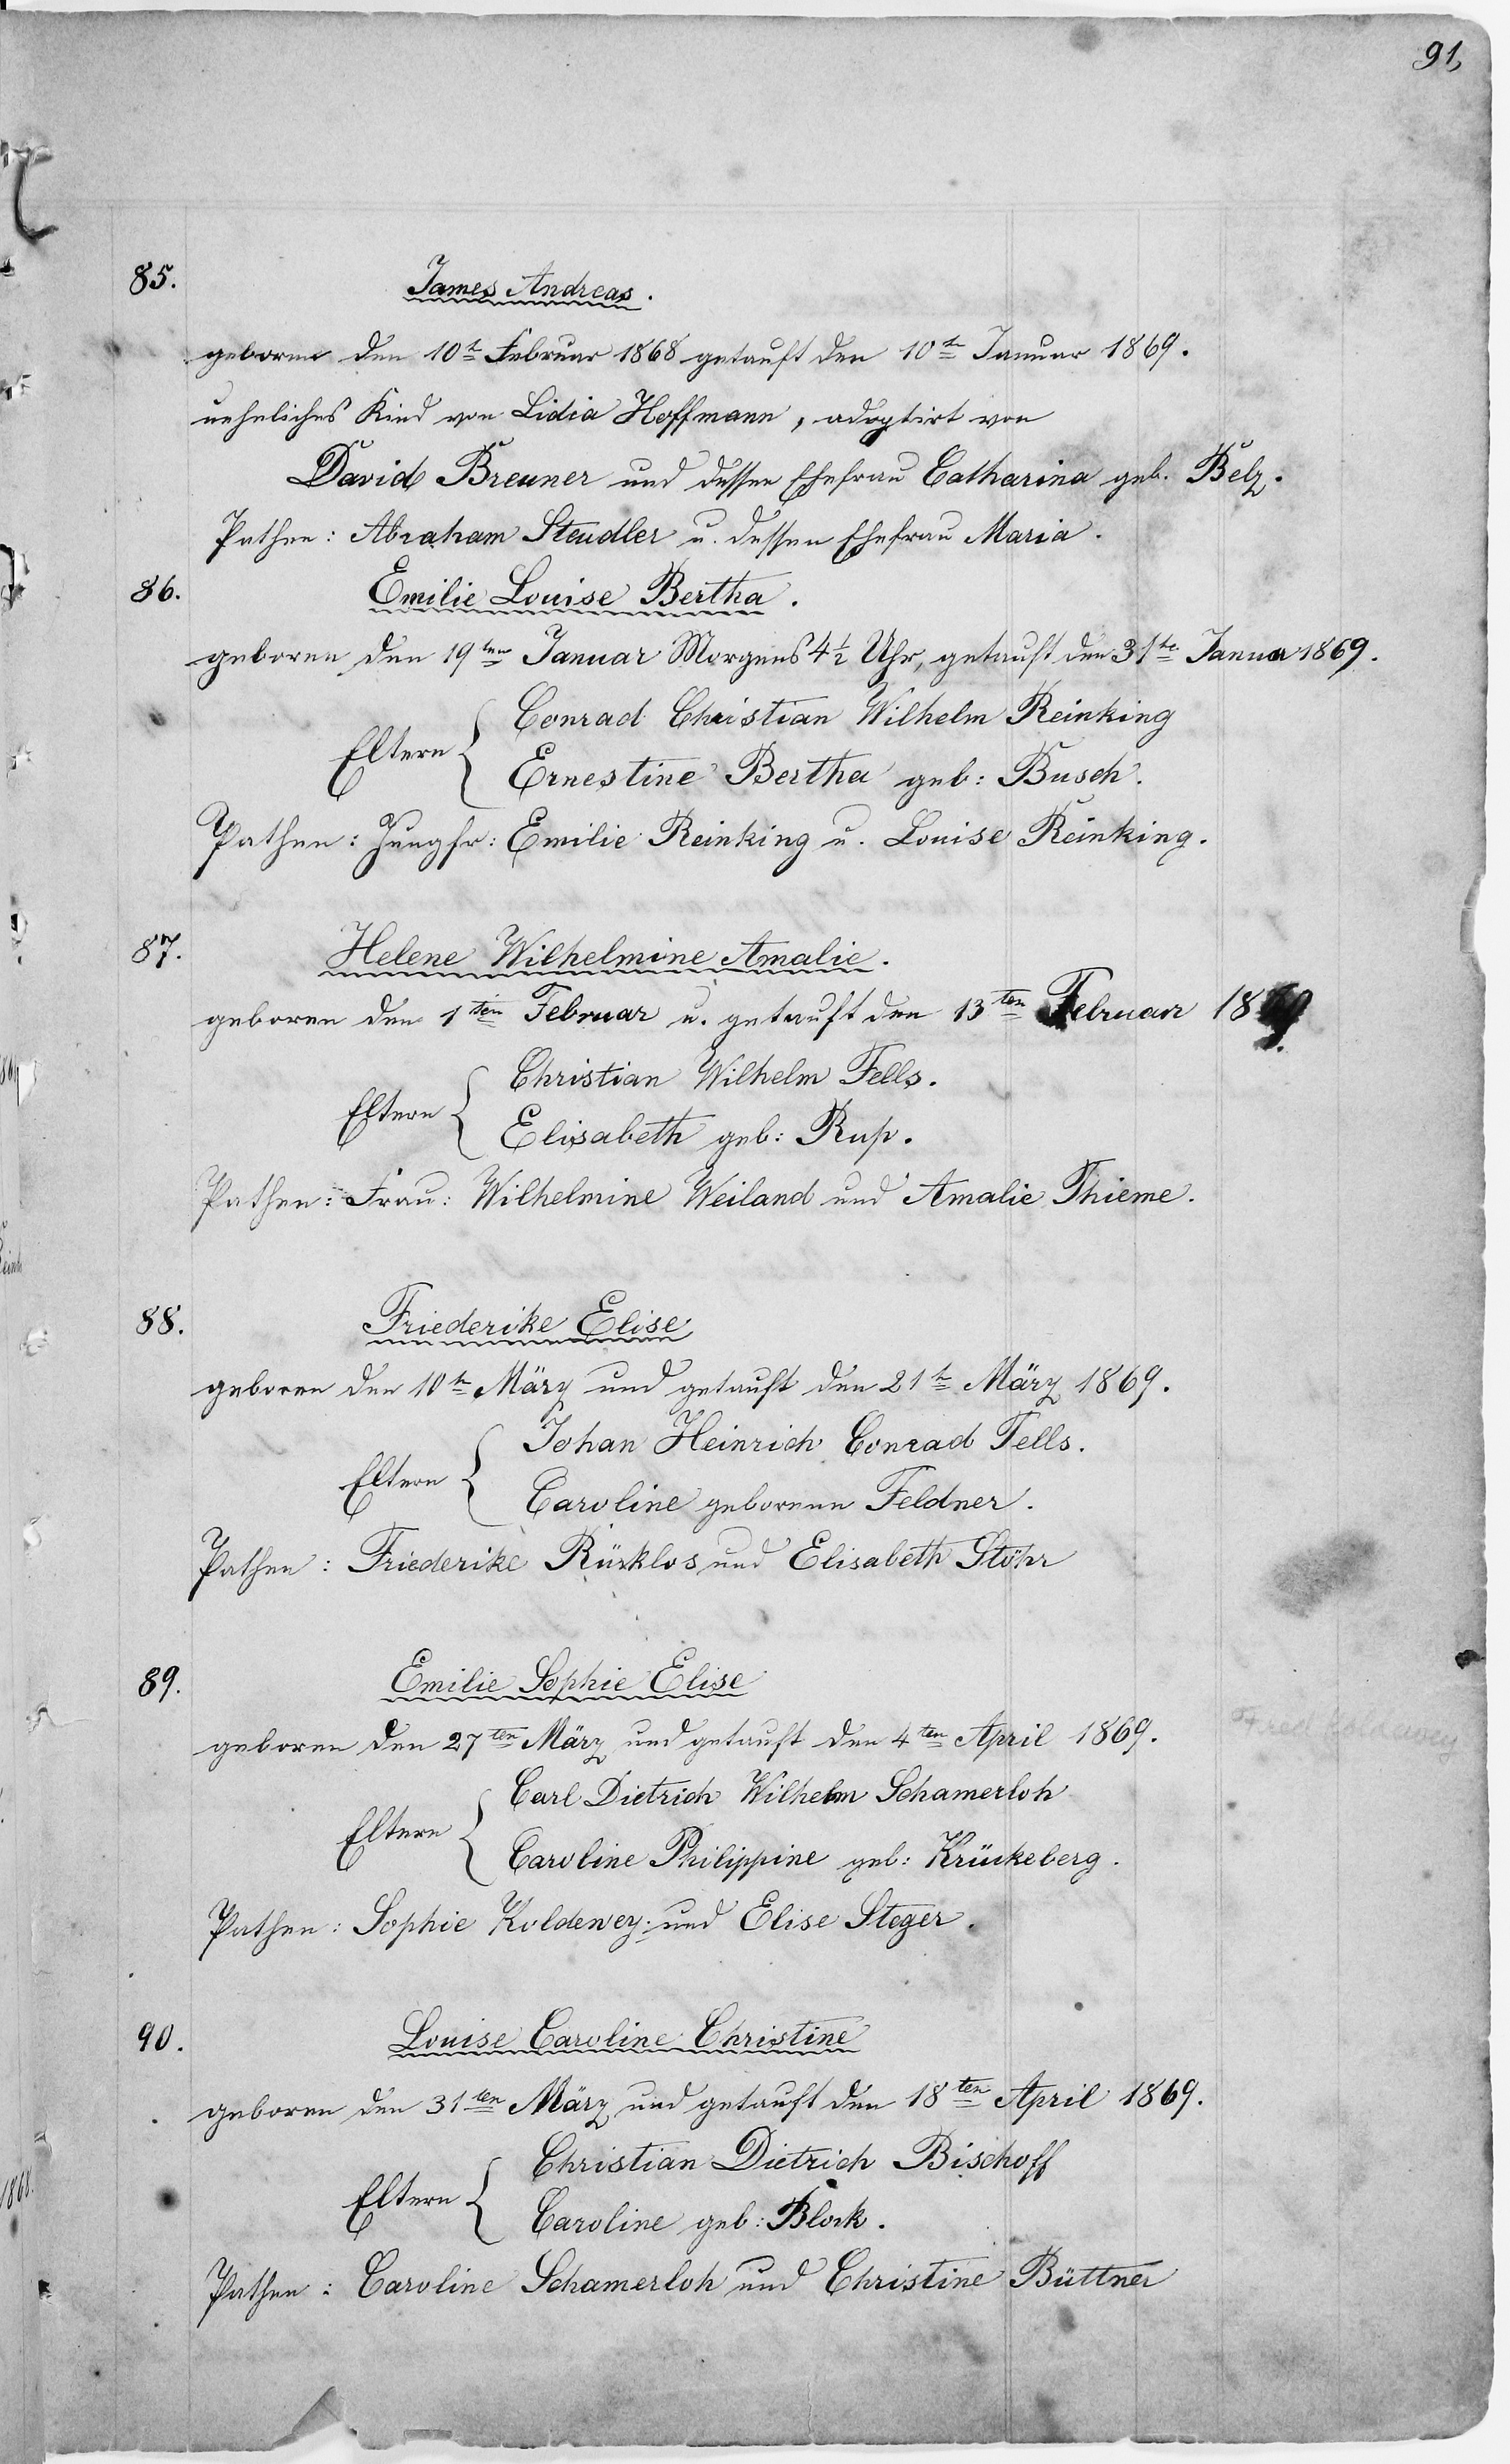 91,
85. James Andreas.
geboren den 10t Februar 1868 getauft den 10te Januar 1869.
uneheliches Kind von Lidia Hoffmann, adoptirt von
David Breuner und dessen Ehefrau Catharina geb. Belz.
Pathen: Abraham Steudler u. dessen Ehefrau Maria.
86. Emilie Louise Bertha.
geboren den 19ten Januar Morgens 4½ Uhr, getauft den 31te Januar 1869.
Conrad Christian Wilhelm Reinking
Eltern {
Ernestine Bertha geb: Busch.
Pathen: Jungfr: Emilie Reinking u. Louise Reinking.
87. Helene Wilhelmine Amalie.
geboren den 1ten Februar u. getauft den 13ten Februar 1869.
Christian Wilhelm Fells.
Eltern {
Elisabeth geb: Rup.
Pathen: Frau: Wilhelmine Weiland und Amalie Thieme.
88. Friederike Elise
geboren den 10te März und getauft den 21te März 1869.
Johan Heinrich Conrad Fells.
Eltern {
Caroline geborene Feldner.
Pathen: Friederike Rürklos und Elisabeth Stöhr
89. Emilie Sophie Elise
geboren den 27ten März und getauft den 4ten April 1869.
Fred
Carl Dietrich Wilhelm Schamerloh
Eltern {
Caroline Philippine geb: Krückeberg.
Pathen: Sophie Koldewey: und Elise Steger.
90. Louise Caroline Christine
geboren den 31ten März und getauft den 18ten April 1869.
Christian Dietrich Bischoff
Eltern {
Caroline geb: Block.
Pathen: Caroline Schamerloh und Christine Büttner
1868.